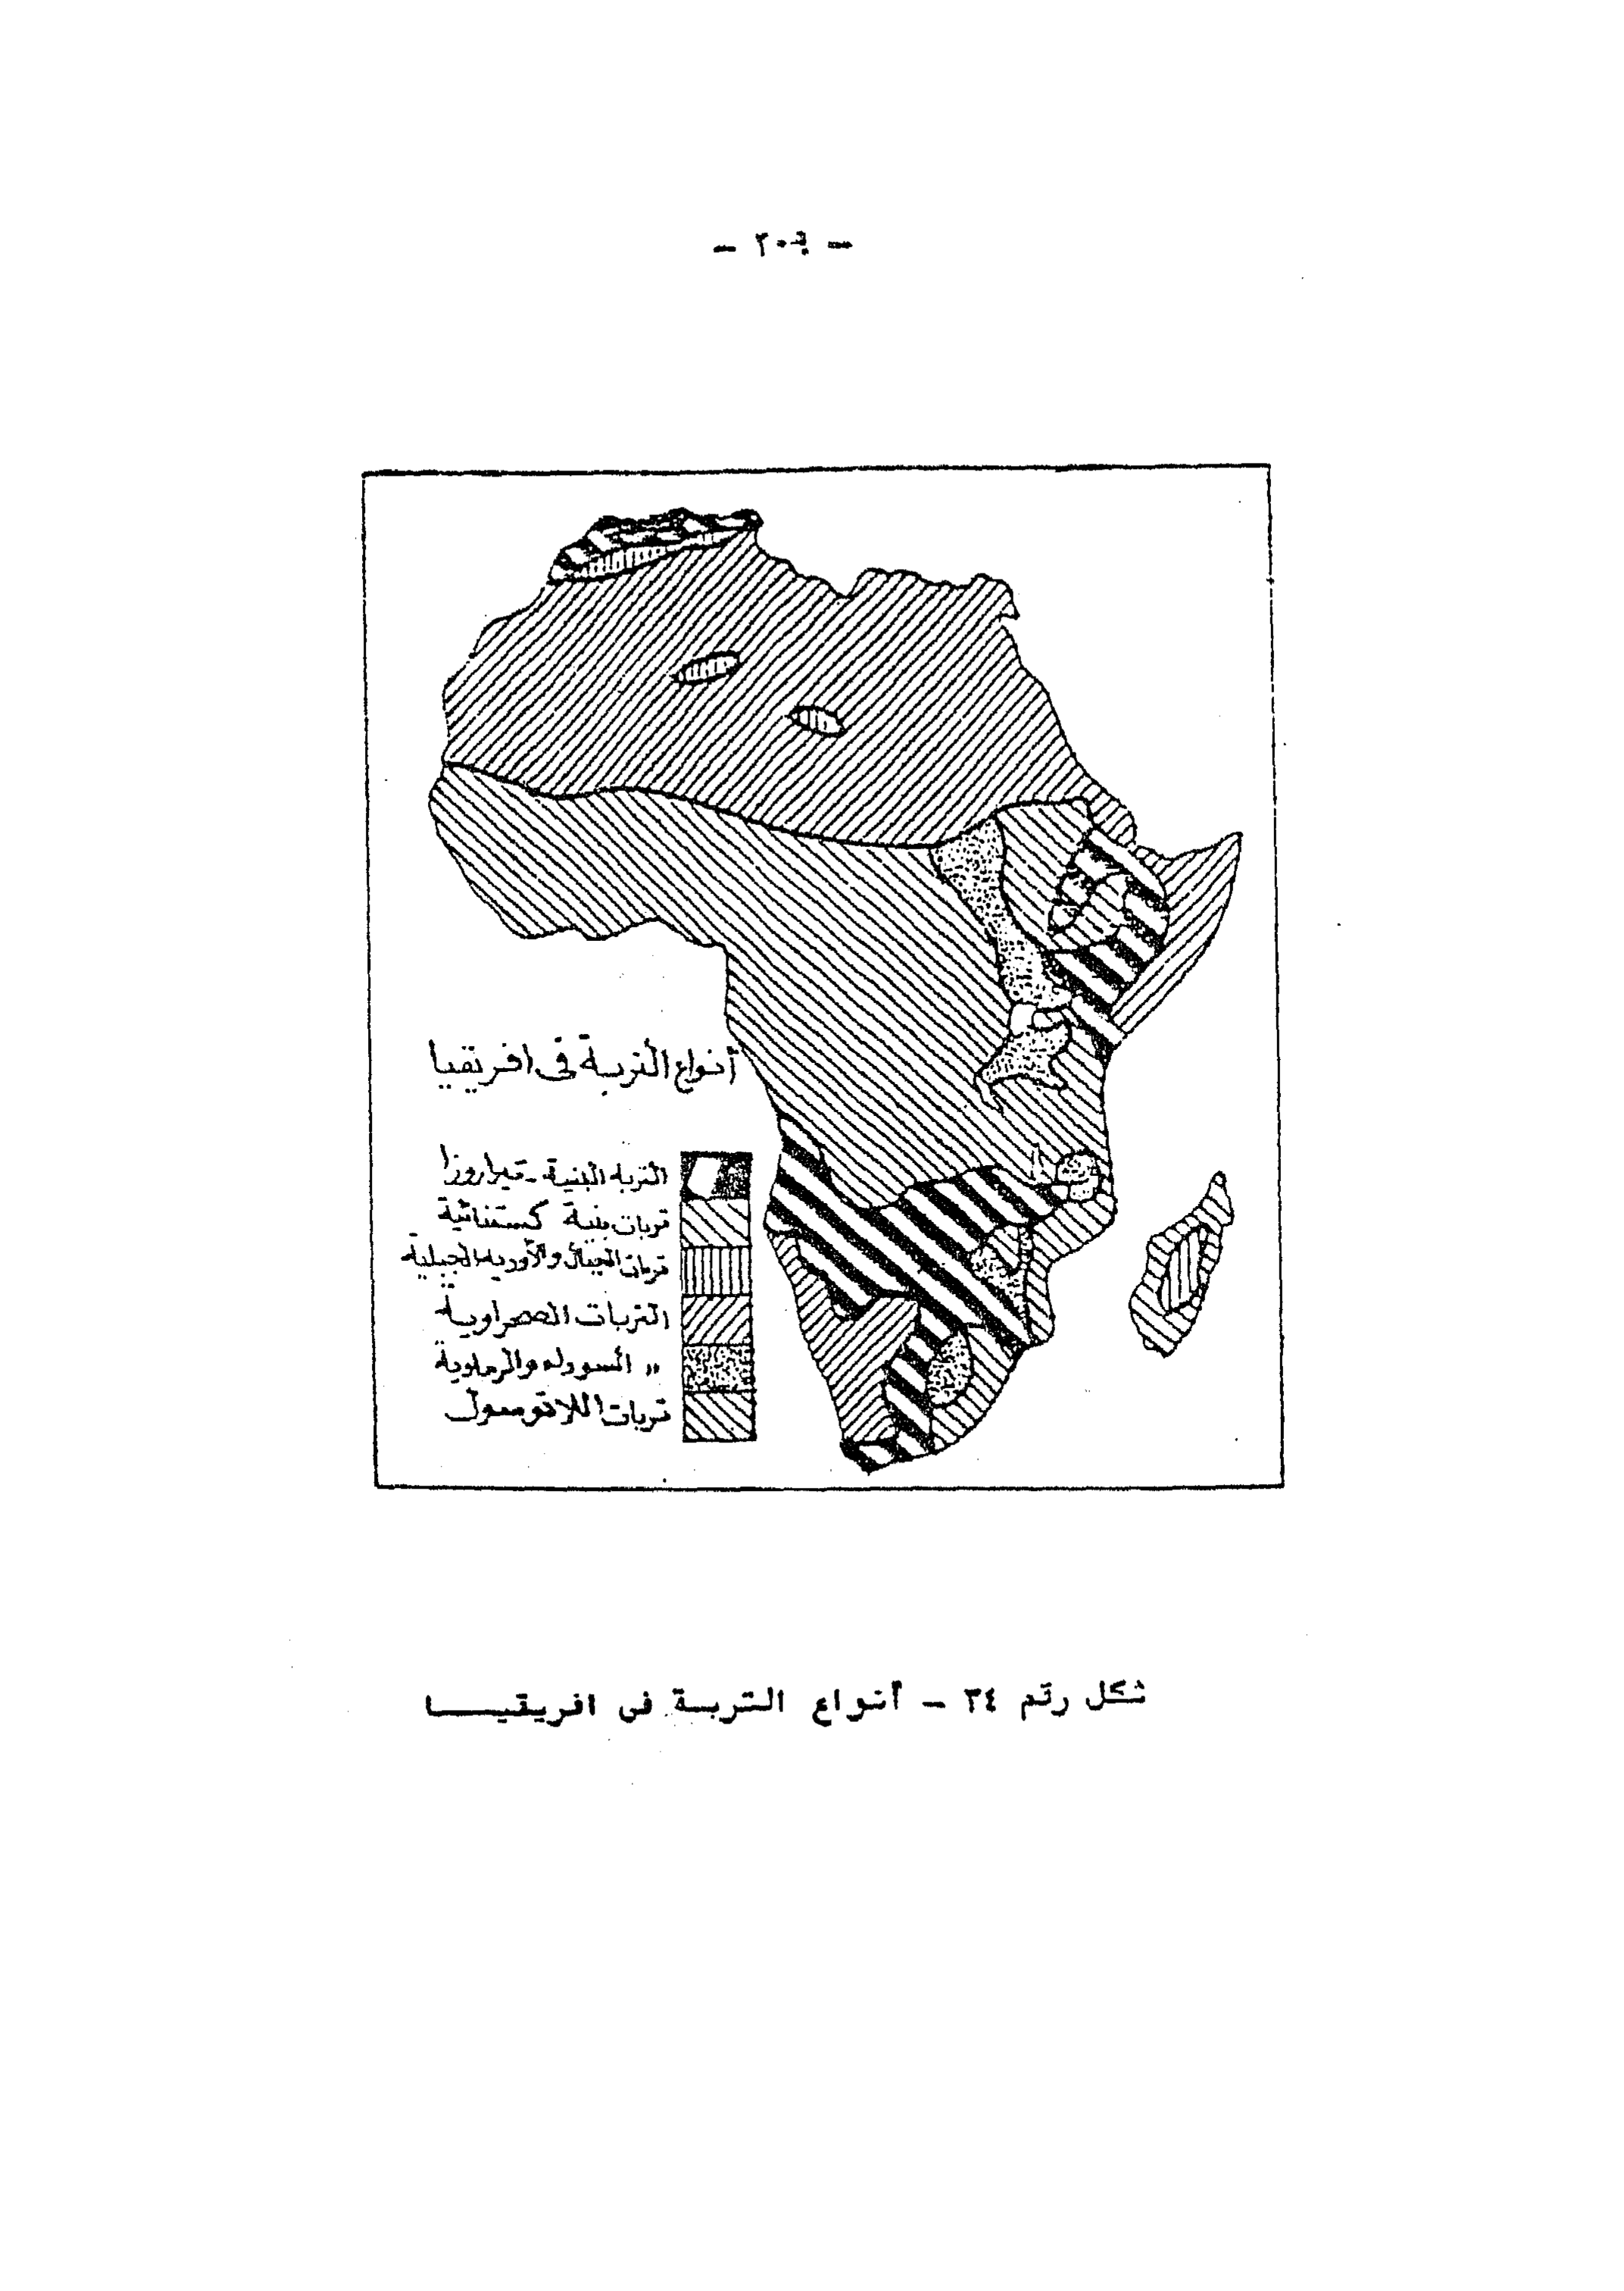 أنواع التربة فى افريقيا
التربه البنية -
تربات بنية كستنائية
تربات الجبال والأوديه الجبلية
التربات الصحراوية
〃 السوداء والرملوية
تربات اللاتوسول
شكل رقم ٣٤ - أنواع التربة فى افريقيا